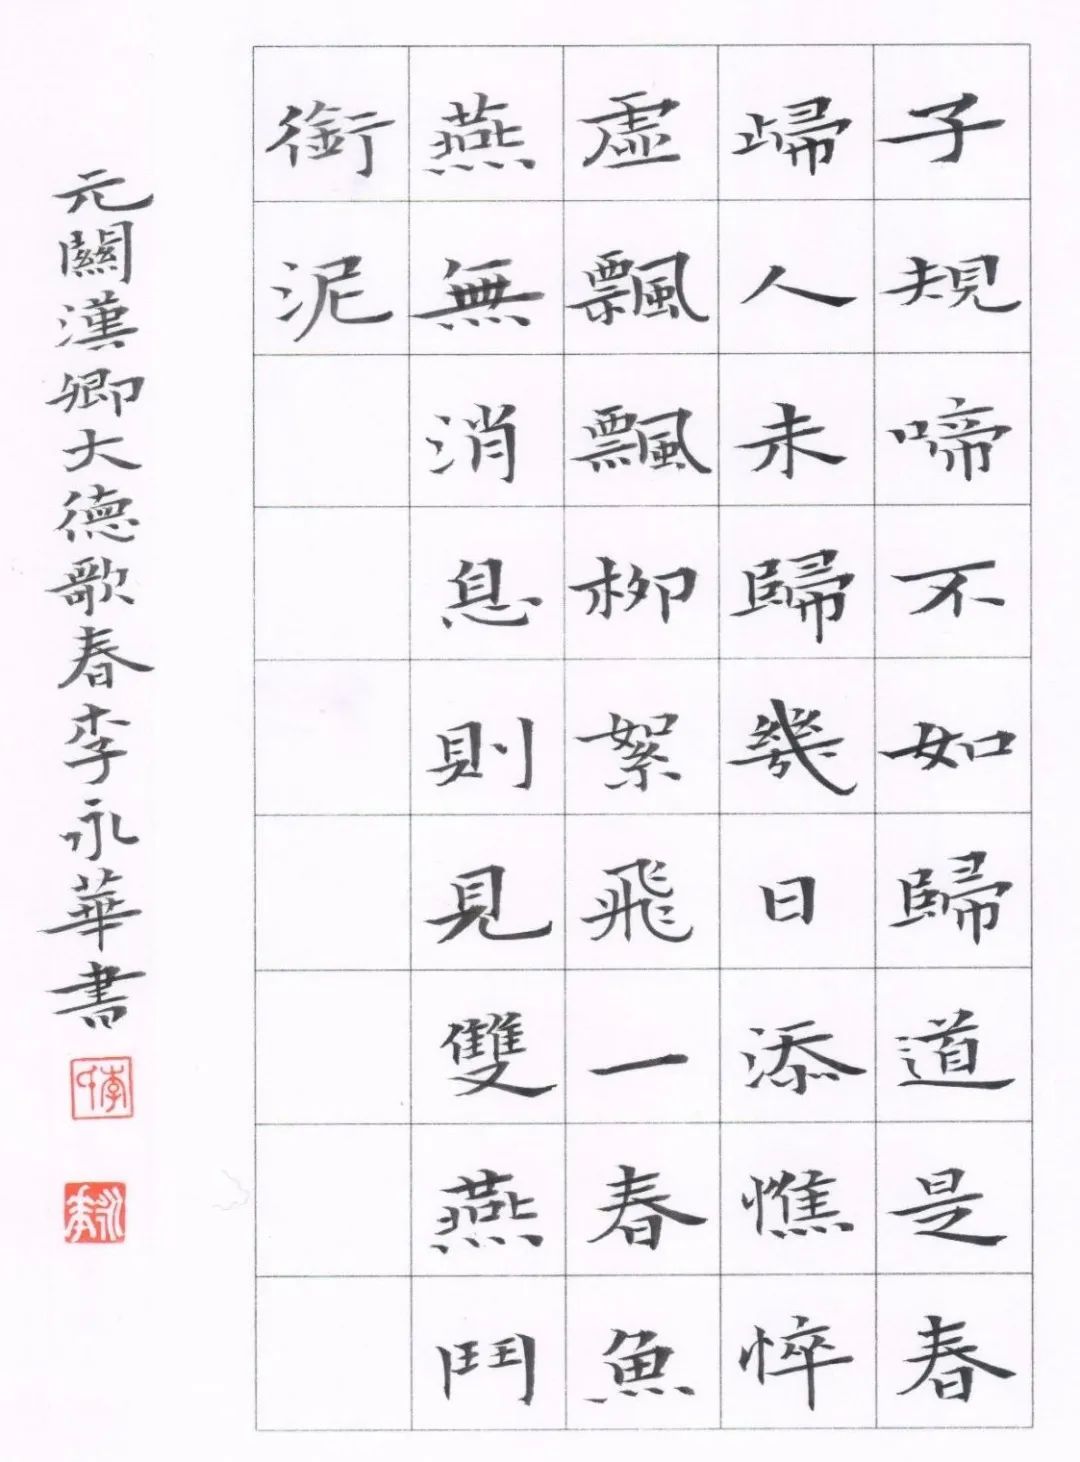 子規啼不如歸道是春
㱕人未歸幾日添憔悴
虛飄飄柳絮飛一春魚
燕無消息則見雙燕鬥
銜泥
元關漢卿大德歌春李永華書
永華